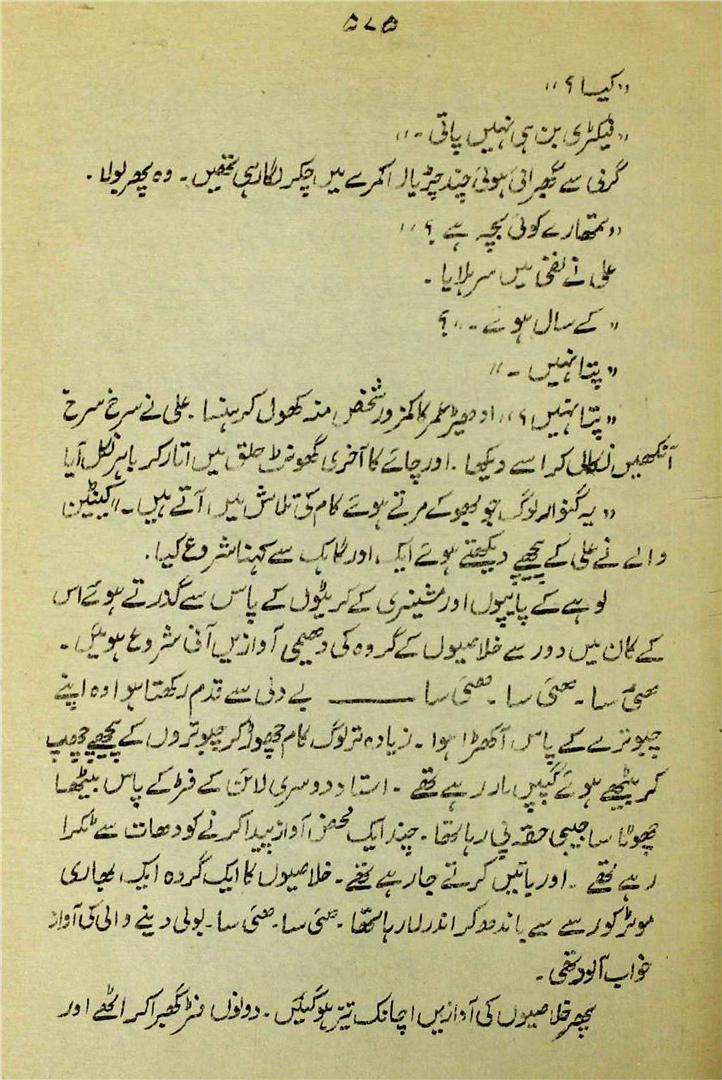 ۵۷۵
"کیسا؟"
"فیکٹری بن ہی نہیں پاتی۔"
گرمی سے گھبرائی ہوئی چند چڑیاں کمرے میں چکر لگا رہی تھیں۔ وہ پھر بولا۔
"تمھارے کوئی بچہ ہے؟"
علی نے نفی میں سر ہلایا۔
"کے سال ہوئے۔"؟
"پتا نہیں۔"
"پتا نہیں؟" ادھیڑ عمر کا کمزور شخص منہ کھول کر ہنسا۔ علی نے سرخ سرخ
آنکھیں نکال کر اسے دیکھا۔ اور چائے کا آخری گھونٹ حلق میں اتار کر باہر نکل آیا
"یہ گنوار لوگ جو بھوکے مرتے ہوئے کام کی تلاش میں آتے ہیں۔" کینٹین
والے نے علی کے پیچھے دیکھتے ہوئے ایک اور گاہک سے کہنا شروع کیا۔
لوہے کے پایپوں اور مشینری کے کریٹوں کے پاس سے گذرتے ہوئے اس
کے کان میں دور سے خلاصیوں کے گروہ کی دھیمی آوازیں آنی شروع ہوئیں۔
ھئی سا۔ ھئی سا۔ ھئی سا ــــــــ بے دلی سے قدم رکھتا ہوا وہ اپنے
چبوترے کے پاس آکھڑا ہوا۔ زیادہ تر لوگ کام چھوڑ کر چبوتروں کے پیچھے چھپ
کر بیٹھے ہوئے گپیں مار رہے تھے۔ استاد دوسری لائن کے فرڈ کے پاس بیٹھا
چھوٹا سا جیبی حقہ پی رہا تھا۔ چند ایک محض آواز پیدا کرنے کو دھات سے ٹکرا
رہے تھے۔ اور باتیں کرتے جا رہے تھے۔ خلاصیوں کا ایک گروہ ایک بھاری
موٹر کو رسے سے باندھ کر اندر لا رہا تھا۔ ھئی سا۔ ھئی سا۔ بولی دینے والی کی آواز
خواب آلود تھی۔
پھر خلاصیوں کی آوازیں اچانک تیز ہو گئیں۔ دونوں فٹر گھبرا کر اٹھے اور